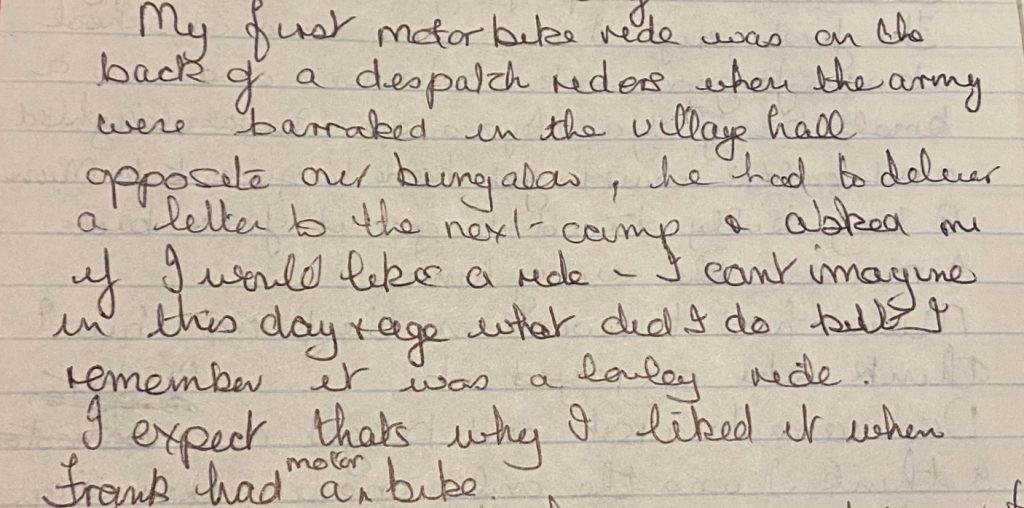 My first motorbike ride was on the
back of a despatch riders when the army
were barraked in the village hall
opposite our bungalow, he had to deliver
a letter to the next camp & asked me
if I would like a ride - I cant imagine
in this day + age what did I do but I
remember it was a lovley ride.
I expect thats why I liked it when
Frank had a motor bike.